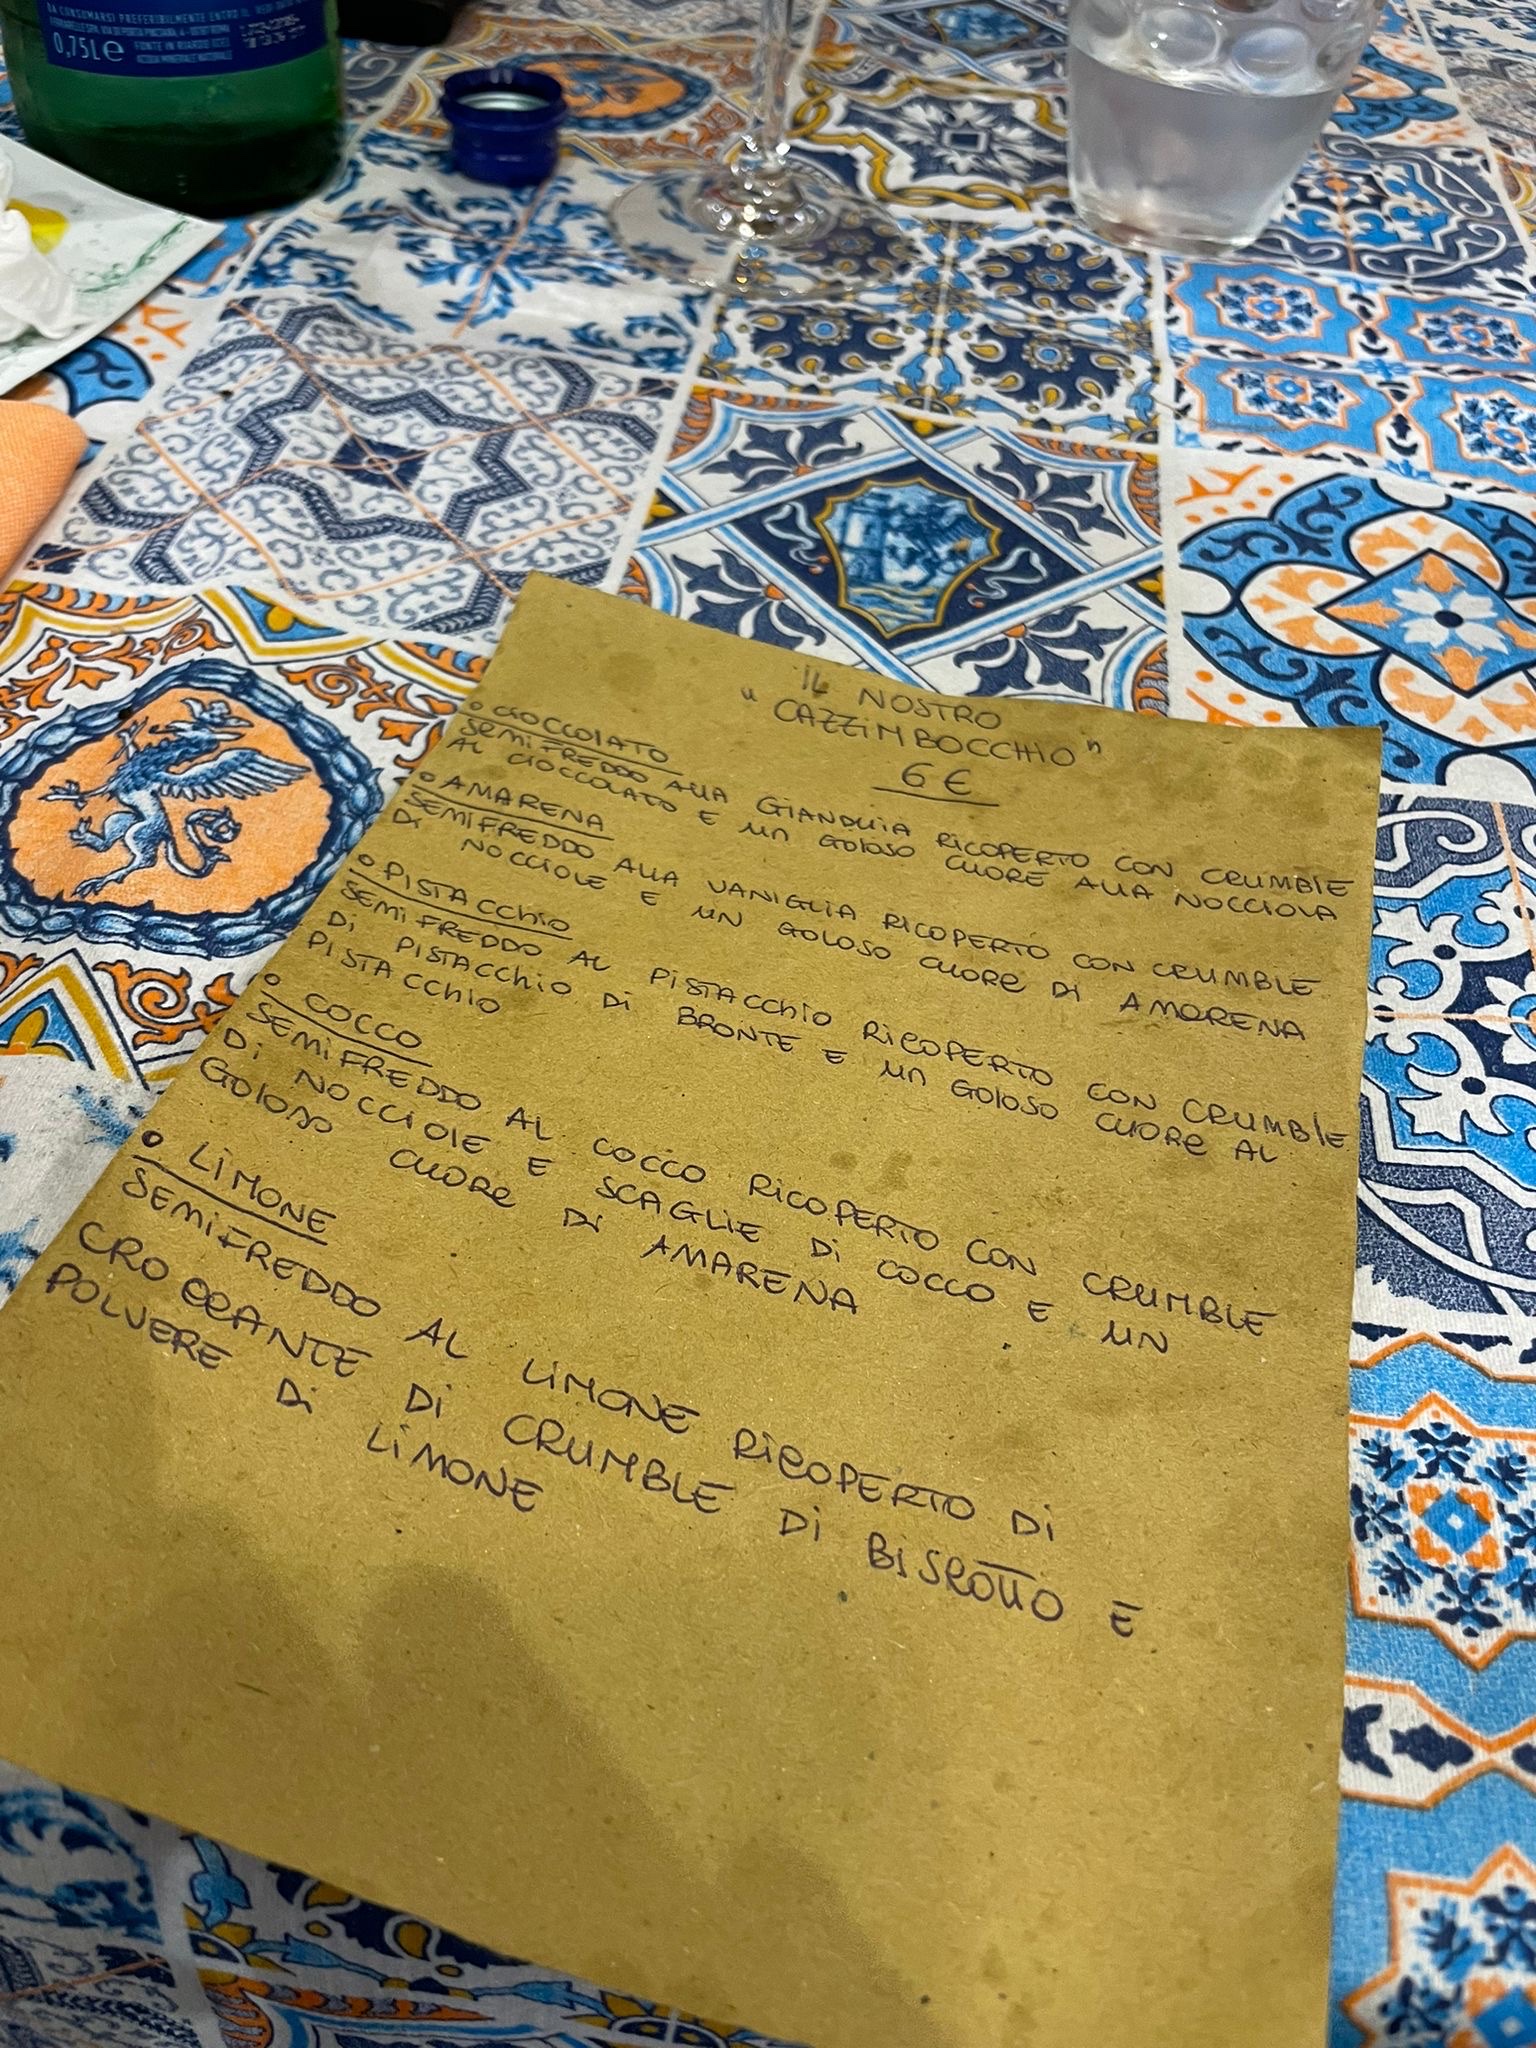 DA CONSUMARSI PREFERIBILMENTE ENTRO IL
0,75L e
FONTE IN RIARDO
ACQUA MINERALE NATURALE
IL NOSTRO
"CAZZIMBOCCHIO"
6 €
• CIOCCOLATO
SEMIFREDDO ALLA GIANDUIA RICOPERTO CON CRUMBLE
AL CIOCCOLATO E UN GOLOSO CUORE ALLA NOCCIOLA
• AMARENA
SEMIFREDDO ALLA VANIGLIA RICOPERTO CON CRUMBLE
DI NOCCIOLE E UN GOLOSO CUORE DI AMARENA
• PISTACCHIO
SEMIFREDDO AL PISTACCHIO RICOPERTO CON CRUMBLE
DI PISTACCHIO DI BRONTE E UN GOLOSO CUORE AL
PISTACCHIO
• COCCO
SEMIFREDDO AL COCCO RICOPERTO CON CRUMBLE
DI NOCCIOLE E SCAGLIE DI COCCO E UN
GOLOSO CUORE DI AMARENA
• LIMONE
SEMIFREDDO AL LIMONE RICOPERTO DI
CROCCANTE DI CRUMBLE DI BISCOTTO E
POLVERE DI LIMONE